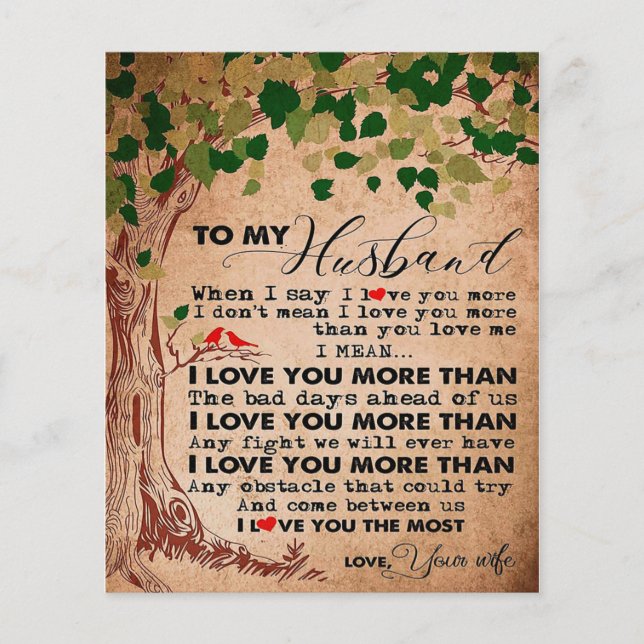 TO MY Husband
When I say I love you more
I don't mean I love you more
than you love me
I MEAN...
I LOVE YOU MORE THAN
The bad days ahead of us
I LOVE YOU MORE THAN
Any fight we will ever have
I LOVE YOU MORE THAN
Any obstacle that could try
And come between us
I LOVE YOU THE MOST
LOVE, Your wife